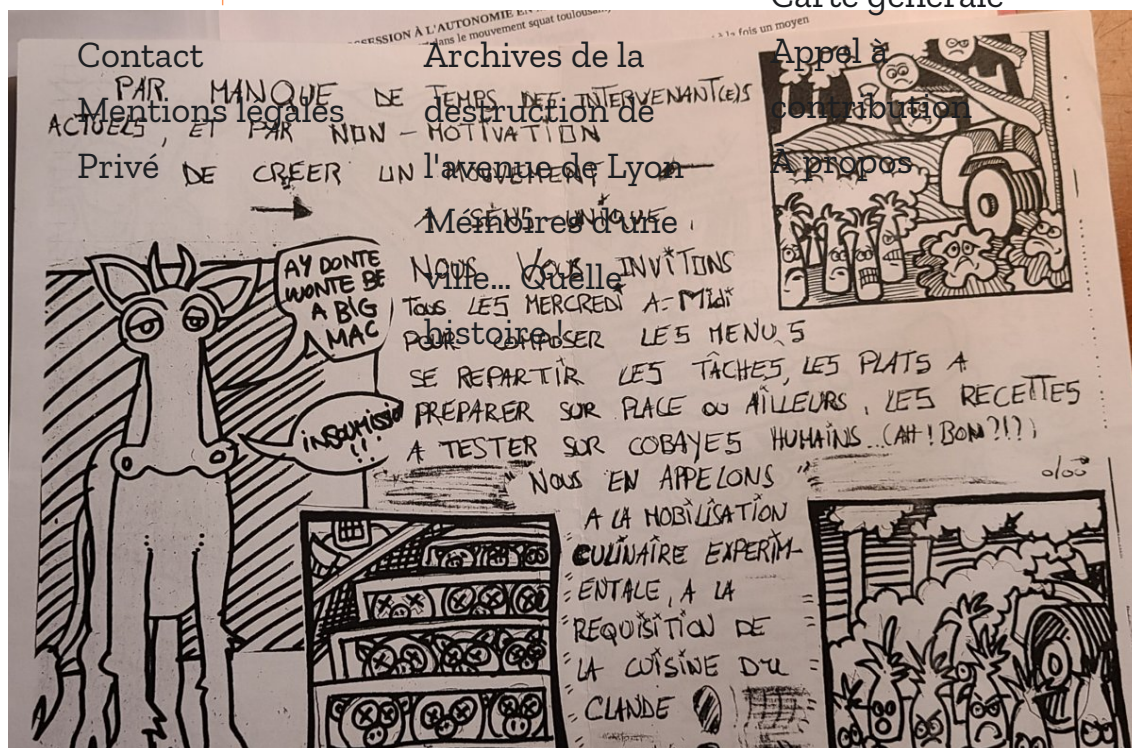 Carte générale
Contact
Mentions légales
Privé
Archives de la
destruction de
l'avenue de Lyon
Mémoires d'une
ville... Quelle
histoire !
Appel à
contribution
À propos
SESSION À L'AUTONOMIE EN
dans le mouvement squat toulousain
à la fois un moyen
PAR MANQUE DE TEMPS DES INTERVENANT(E)S
ACTUELS, ET PAR NON-MOTIVATION
DE CREER UN MOUVEMENT
A SENS-UNIQUE,
NOUS VOUS INVITONS
TOUS LES MERCREDI A-Midi
POUR COMPOSER LES MENUS
SE REPARTIR LES TÂCHES, LES PLATS A
PREPARER SUR PLACE OU AILLEURS, LES RECETTES
A TESTER SUR COBAYES HUMAINS...(AH! BON?!?)
AY DONTE
WONTE BE
A BIG
MAC
INSOUMISSIO
!!
"NOUS EN APPELONS "
A LA MOBILISATION
CULINAIRE EXPERIM-
ENTALE, A LA
REQUISITION DE
LA CUISINE DU
CLANDE